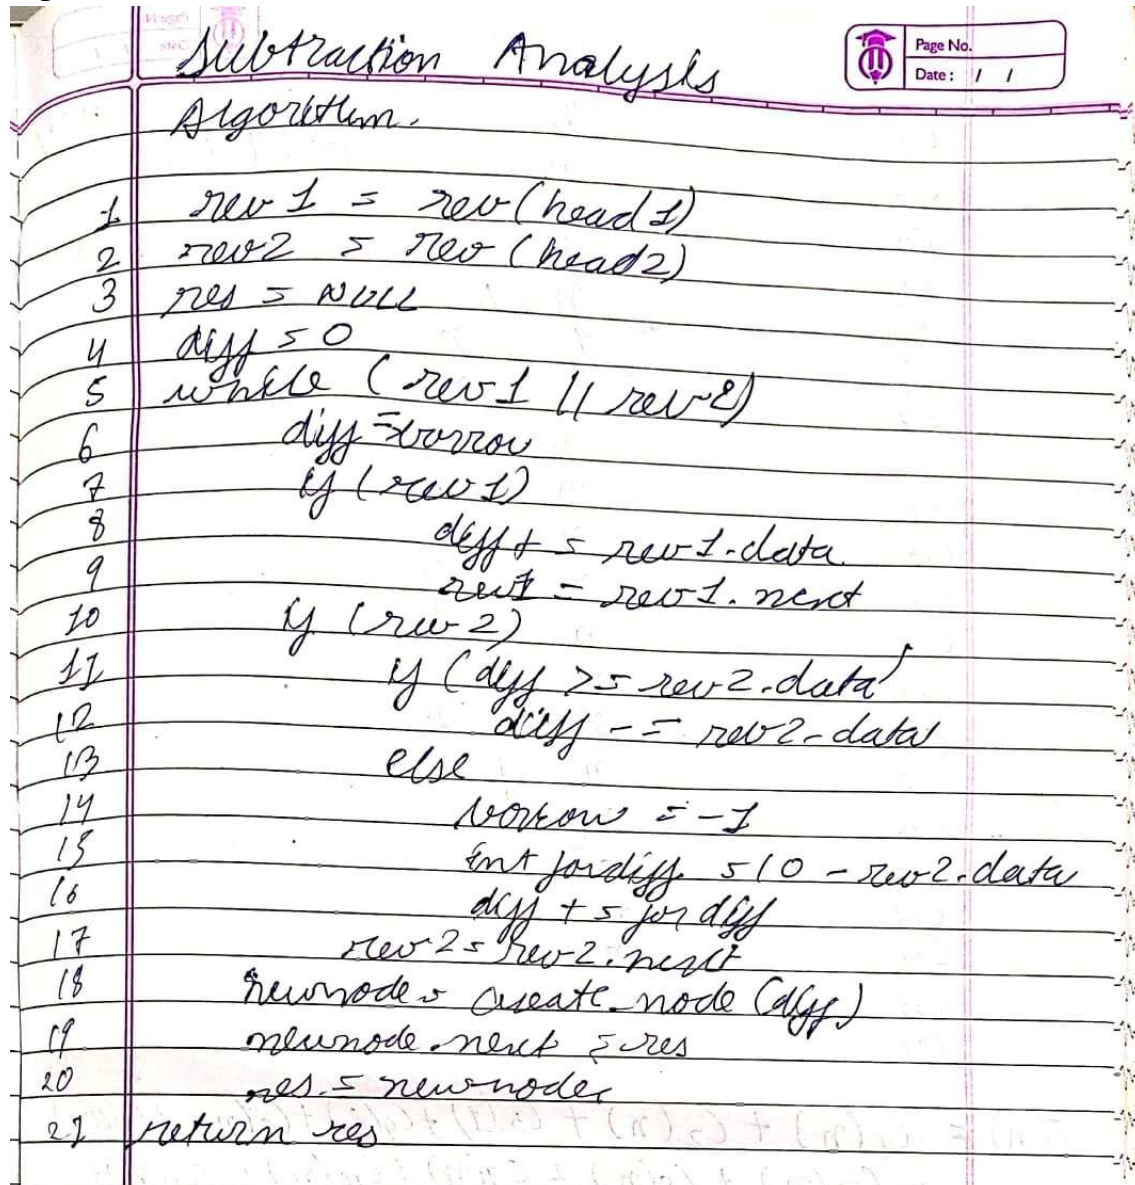 Subtraction Analysis
Page No.
Date: / /
Algorithm.
1 rev1 = rev(head1)
2 rev2 = rev(head2)
3 res = NULL
4 diff = 0
5 while (rev1 || rev2)
6 diff = borrow
7 if (rev1)
8 diff += rev1.data
9 rev1 = rev1.next
10 if (rev2)
11 if (diff >= rev2.data)
12 diff -= rev2.data
13 else
14 borrow = -1
15 int fordiff = 10 - rev2.data
16 diff += for diff
17 rev2 = rev2.next
18 newnode = create_node(diff)
19 newnode.next = res
20 res = newnode
21 return res